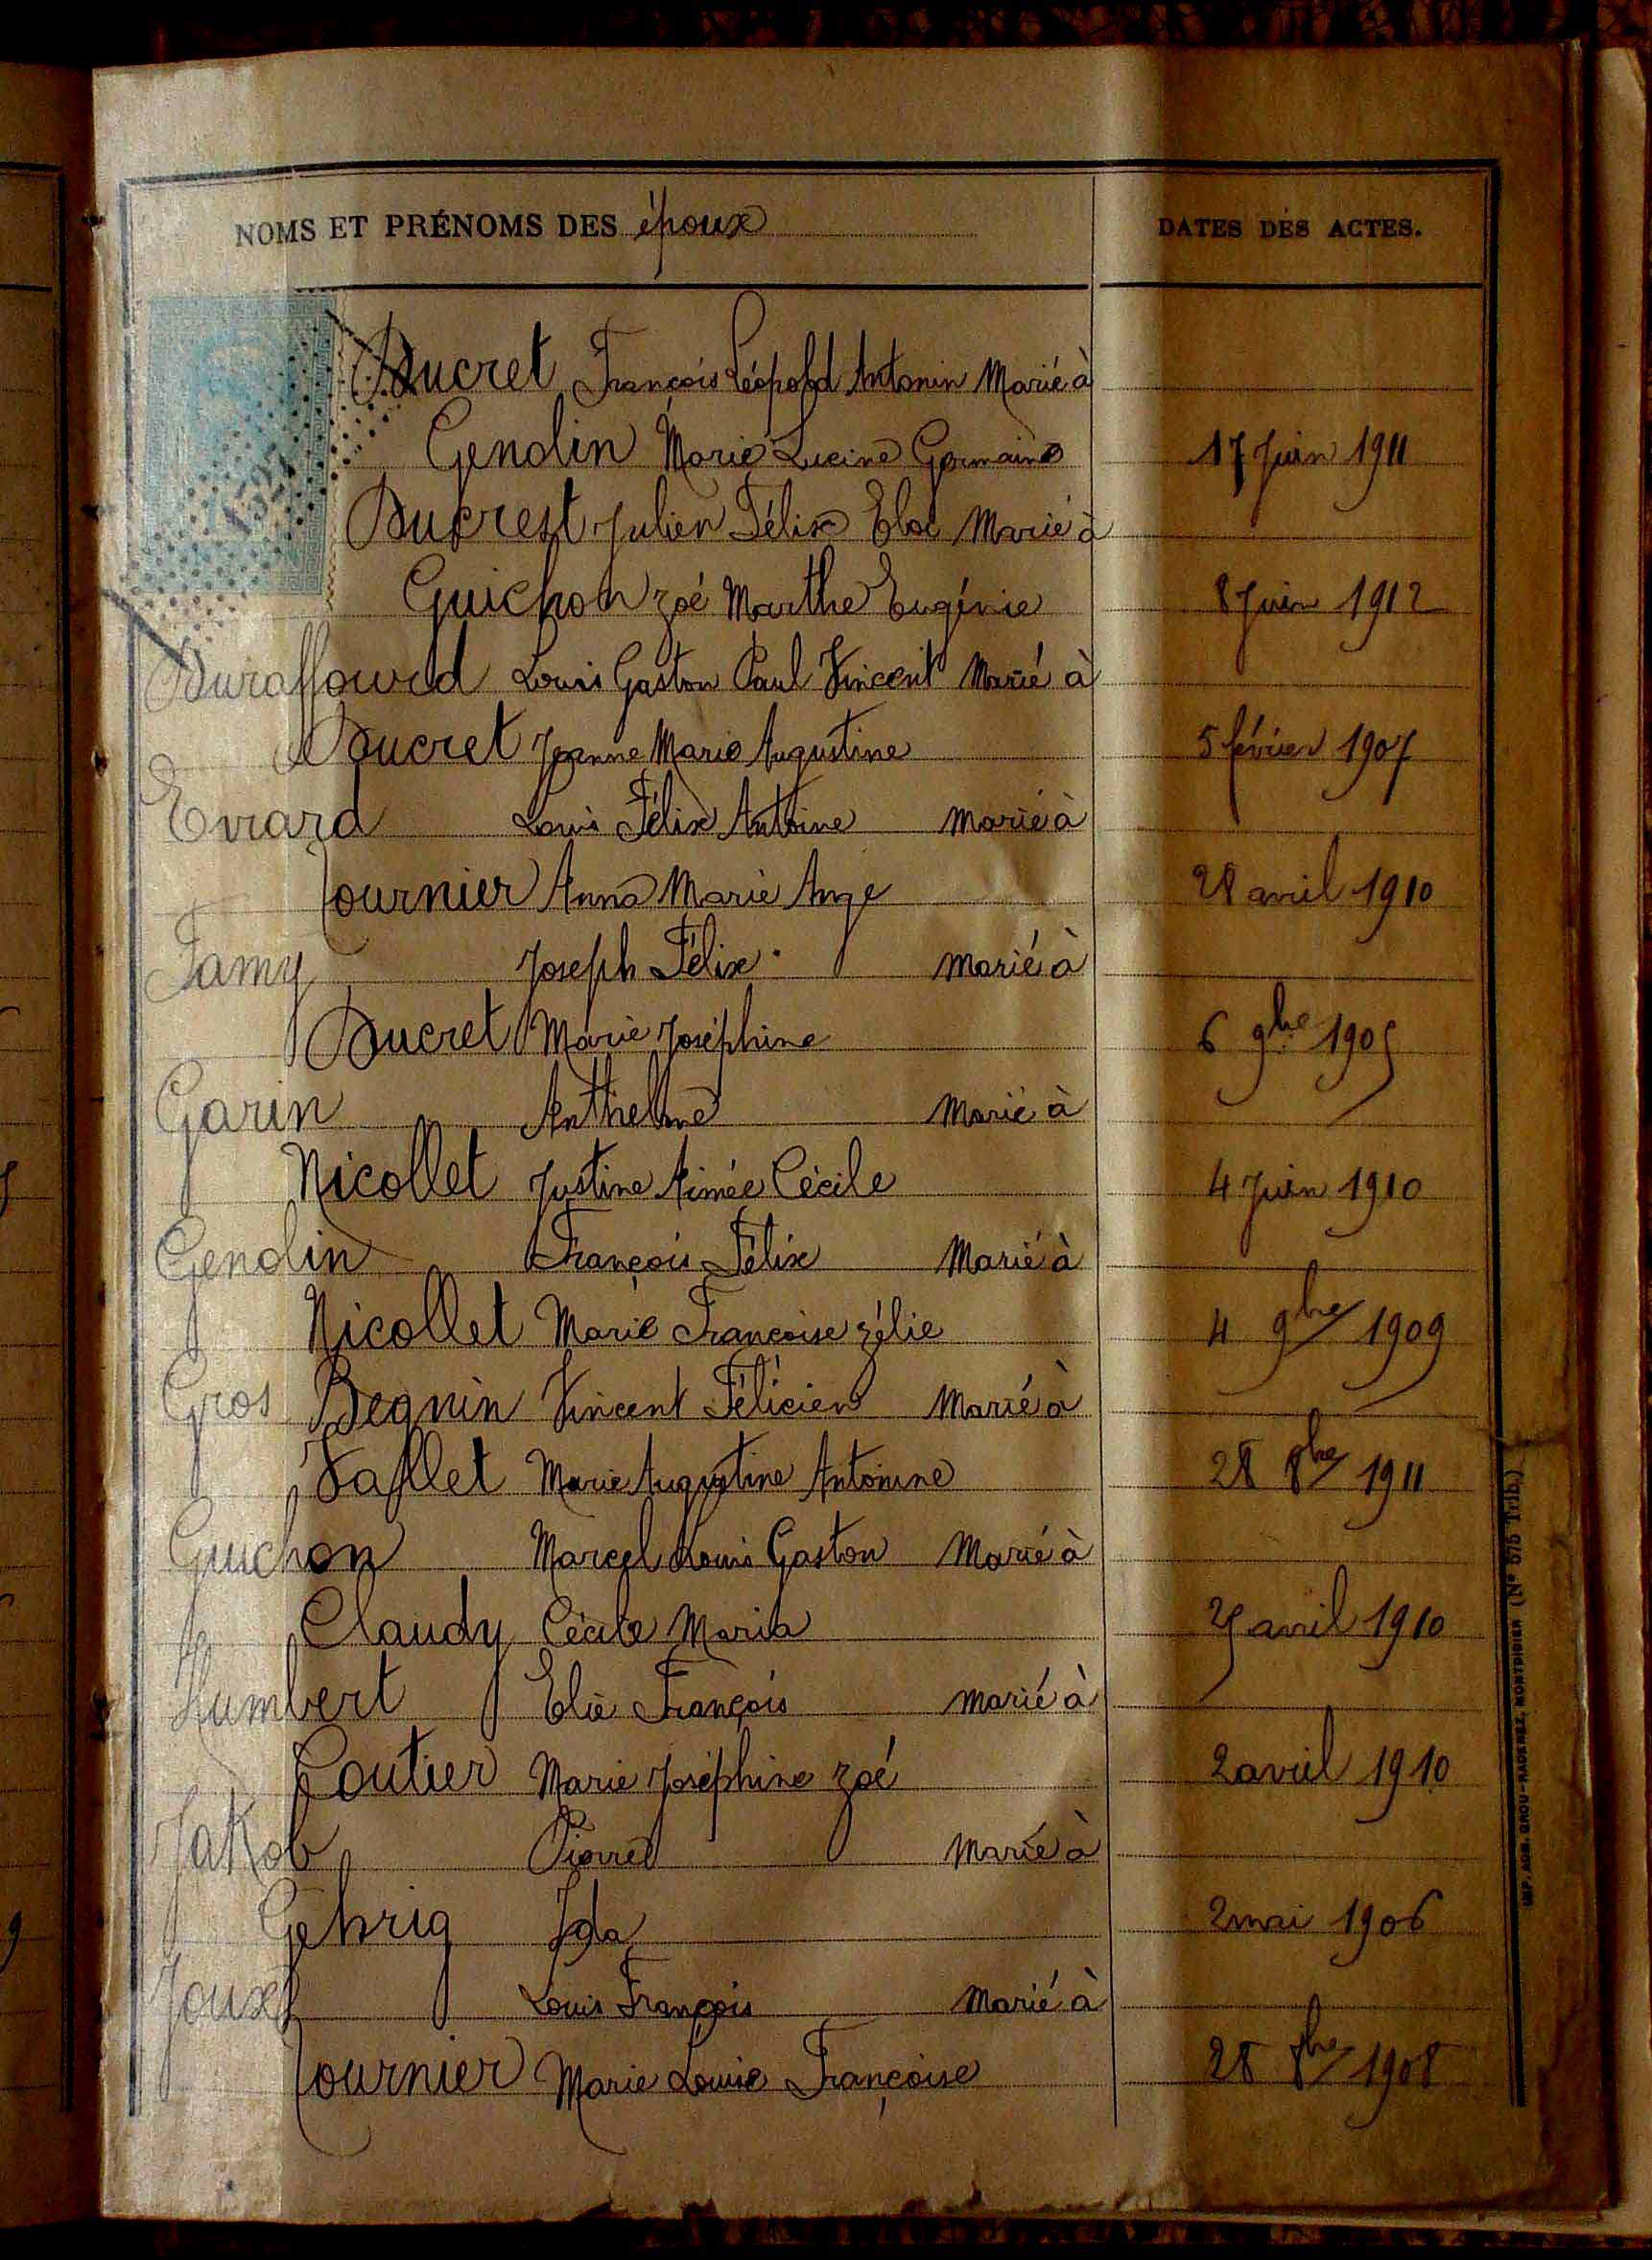 NOMS ET PRÉNOMS DES époux
DATES DES ACTES.
Ducret François Léopold Antonin Marié à
Gendin Marie Lucine Germaine 17 Juin 1911
Ducrest Julien Félix Eloi Marié à
Guichon Zoé Marthe Eugénie 8 Juin 1912
Duraffourd Louis Gaston Paul Vincent Marié à
Ducret Jeanne Marie Augustine 5 février 1907
Evrard Louis Félix Antoine Marié à
Tournier Anna Marie Ange 28 avril 1910
Famy Joseph Félix Marié à
Ducret Marie Joséphine 6 9bre 1905
Garin Anthelme Marié à
Nicollet Justine Aimée Cécile 4 Juin 1910
Gendin François Félix Marié à
Nicollet Marie Françoise Zélie 4 9bre 1909
Gros Beguin Vincent Félicien Marié à
Vallet Marie Augustine Antonine 28 8bre 1911
Guichon Marcel Louis Gaston Marié à
Claudy Cécile Maria avril 1910
Humbert Elie François Marié à
Coutier Marie Joséphine Zoé 2 avril 1910
Jakob Pierre Marié à
Gehrig Ida 2 mai 1906
Joux Louis François Marié à
Tournier Marie Louise Françoise 28 8bre 1908
MONTDIDIER (N° 575 Trib.)